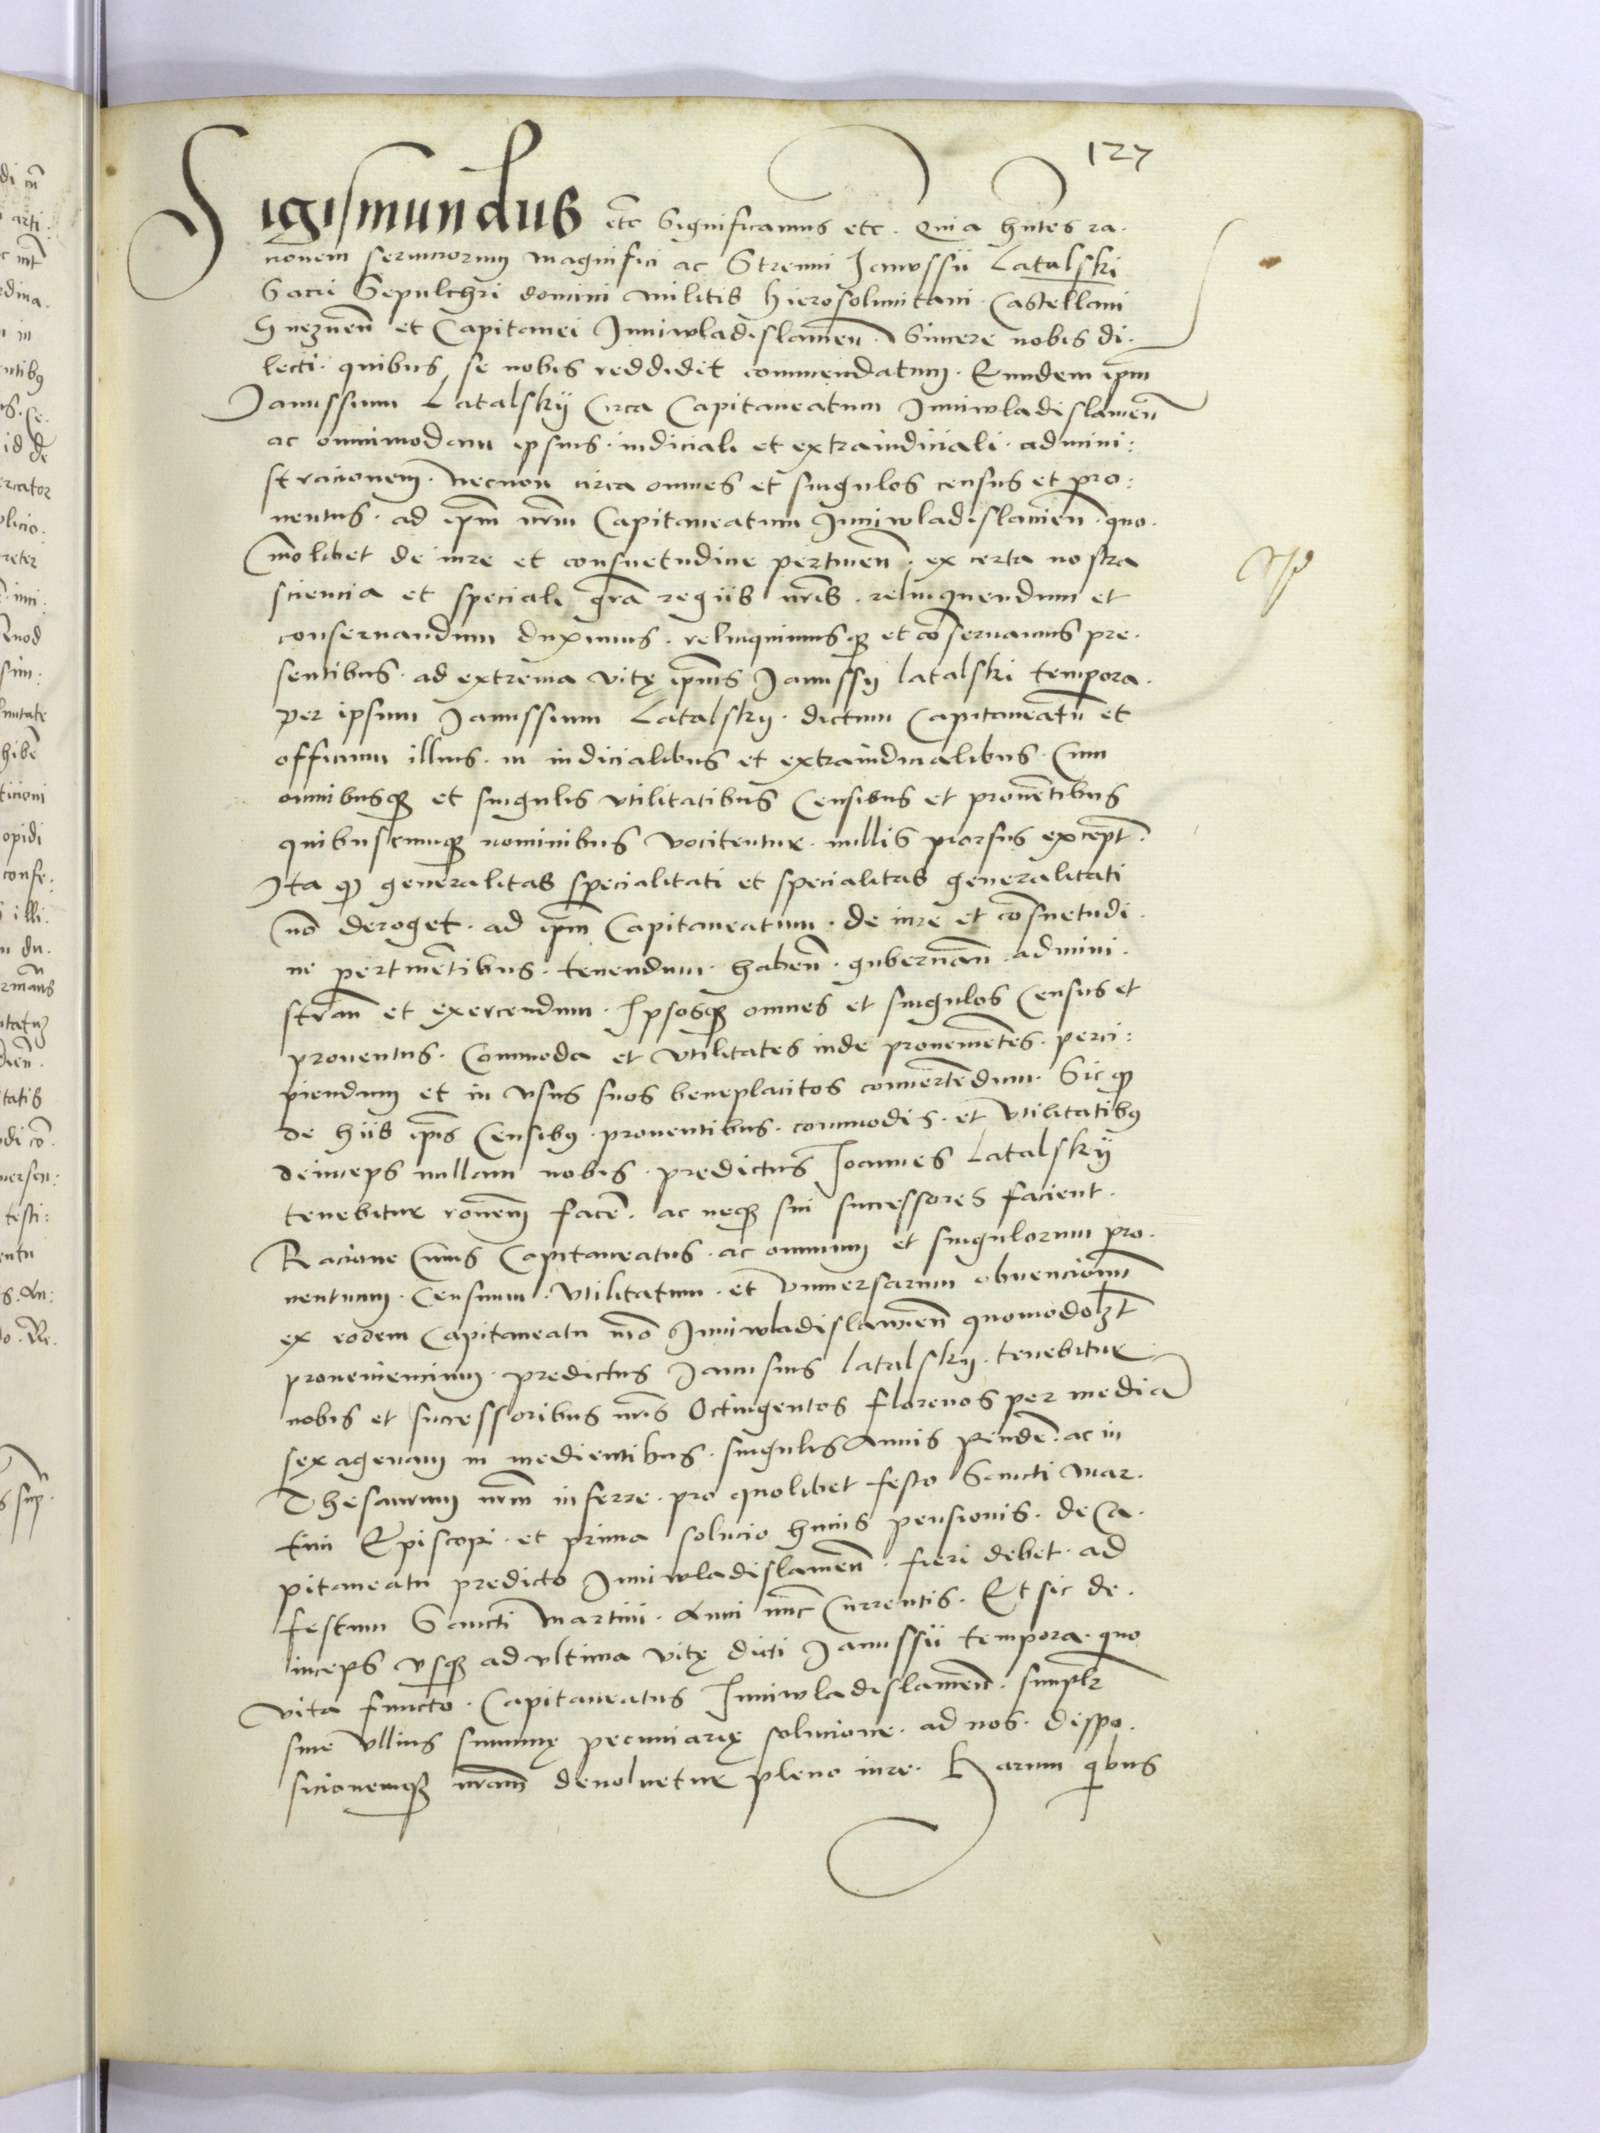 127
Sigismundus etc Significamus etc. Quia hntes ra.
cionem serviciorum magnifici ac Strenui Janussii Latalski
Sacri Sepulchri domini militis Hierosolimitani. Castellani
Gneznen et Capitanei Juniwladislauien. Sincere nobis di.
lecti. quibus se nobis reddidit commendatum. Eundem ipm
Janussium Latalskij Circa Capitaneatum Juniwladislauien
ac omnimodam ipsius. iudiciali et extraiudiciali. admini:
stracionem. necnon circa omnes et singulos census et pro:
uentus. ad ipm nrm Capitaneatum Juniwladislauien. quo.
molibet de iure et consuetudine pertinen. ex certa nostra
sciencia et speciali gra regiis nris. relinquendum et
conseruandum duximus. relinquimusque et coseruamus pre.
sentibus. ad extrema vitę ipius Janussij latalski tempora.
per ipsum Janussium Latalskij. dictum Capitaneatu et
officium illius. in iudicialibus et extraiudicialibus. Cum
omnibusque et singulis vtilitatibus Censibus et prouetibus
quibuscunque nominibus vocitentur. nullis prorsus except.
Ita quod generalitas specialitati et specialitas generalitati
no deroget. ad ipm Capitaneatum. de iure et cosuetudi.
ne pertinetibus. tenendum. haben. gubernan. admini.
stran et exercendum. Ipsosque omnes et singulos Census et
prouentus. Commoda et vtilitates inde prouenietes. perci:
piendum et in vsus suos beneplacitos conuertendum. Sic quod
de hiis ipis Censibus. prouentibus. commodis. et vtilitatibus
deinceps nullam nobis. predictus Joannes Latalskij
tenebitur ronem face. ac neque sui successores facient.
Racione Cuius Capitaneatus. ac omnium et singulorum pro.
uentuum. Censuum. vtilitatum. et Vniuersarum obuencionum
ex eodem Capitaneatu nro Juniwladislauien quomodolibet
proueniencium. predictus Janusius latalskij. tenebitur
nobis et successoribus nris Octingentos florenos per media
sexagenam in medientibus. singulis Annis pende. ac in
Thesaurum nrm inferre. pro quolibet festo Sancti Mar.
tini Episcopi. et prima solucio huius pensionis. de Ca.
pitaneatu predicto Juniwladislauien. fieri debet. ad
festum Sancti Martini. Anni nuc Currentis. Et sic de.
inceps vsque ad vltima vitę dicti Janussii tempora. quo
vita functo. Capitaneatus Juniwladislauien. simplr
sine vllius summę pecuniarię solucione. ad nos. dispo.
sicionemque nram deuoluetur pleno iure. Harum quibus